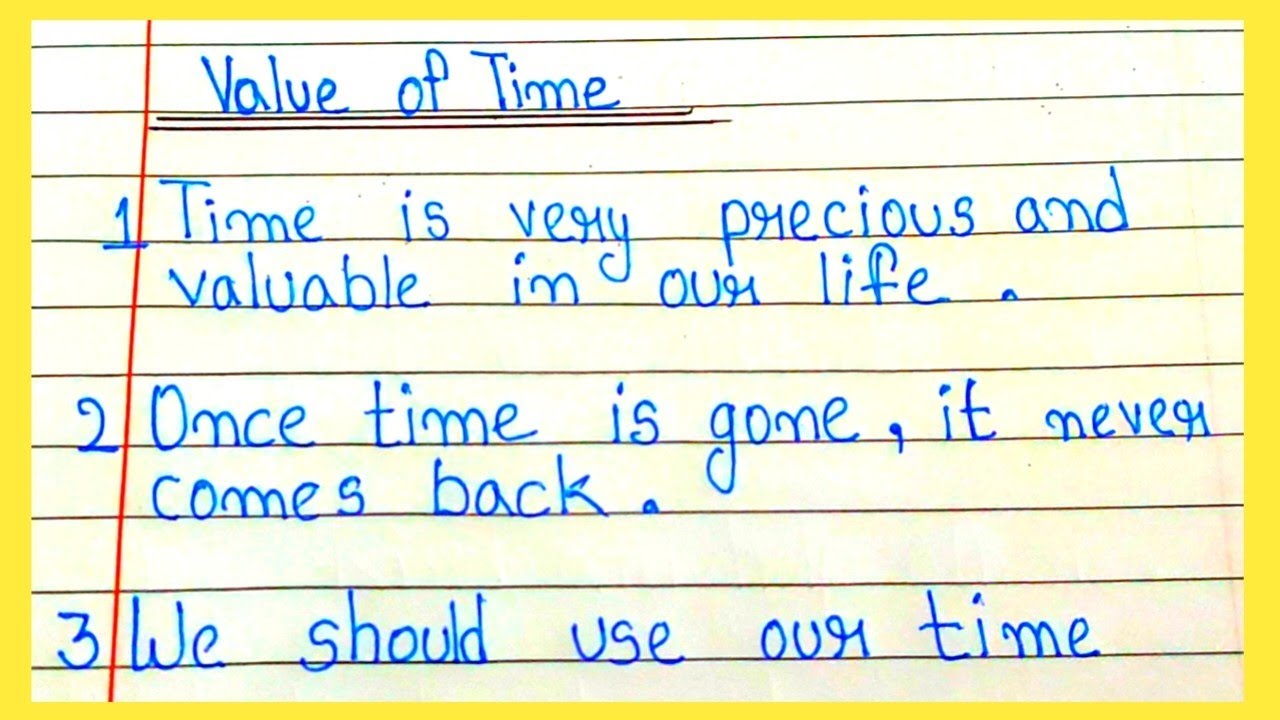 Value of Time
1 Time is very precious and
valuable in our life .
2 Once time is gone, it never
comes back .
3 We should use our time